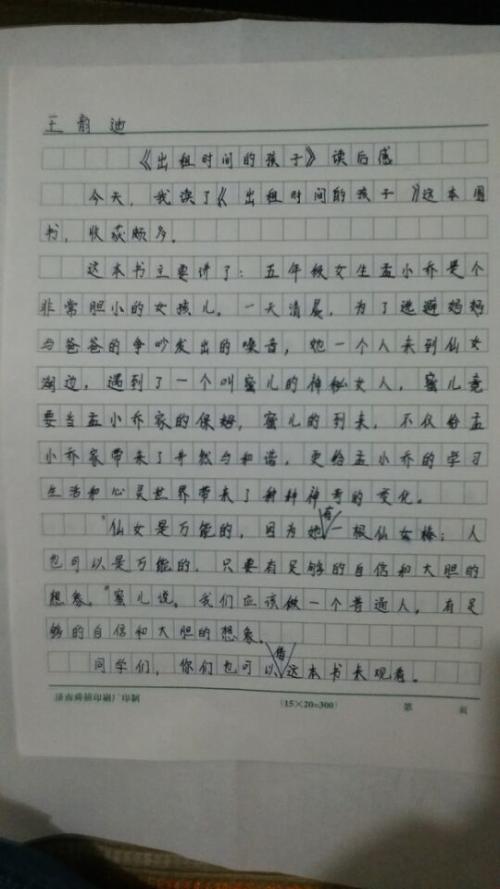 王韵迪
《出租时间的孩子》读后感
今天，我读了《出租时间的孩子》这本图
书，收获颇多。
这本书主要讲了：五年级女生孟小乔是个
非常胆小的女孩儿。一天清晨，为了逃避妈妈
与爸爸的争吵发出的噪音，她一个人来到仙女
湖边，遇到了一个叫蜜儿的神秘女人，蜜儿竟
要当孟小乔家的保姆，蜜儿的到来，不仅给孟
小乔家带来了干然与和谐，更给孟小乔的学习
生活和心灵世界带来了种种神奇的变化。
“仙女是万能的，因为她有一根仙女棒；人
也可以是万能的，只要有足够的自信和大胆的
想象。”蜜儿说。我们应该做一个普通人，有足
够的自信和大胆的想象。
同学们，你们也可以借这本书来观看。
济南舜耕印刷厂印制 (15×20=300) 第 页